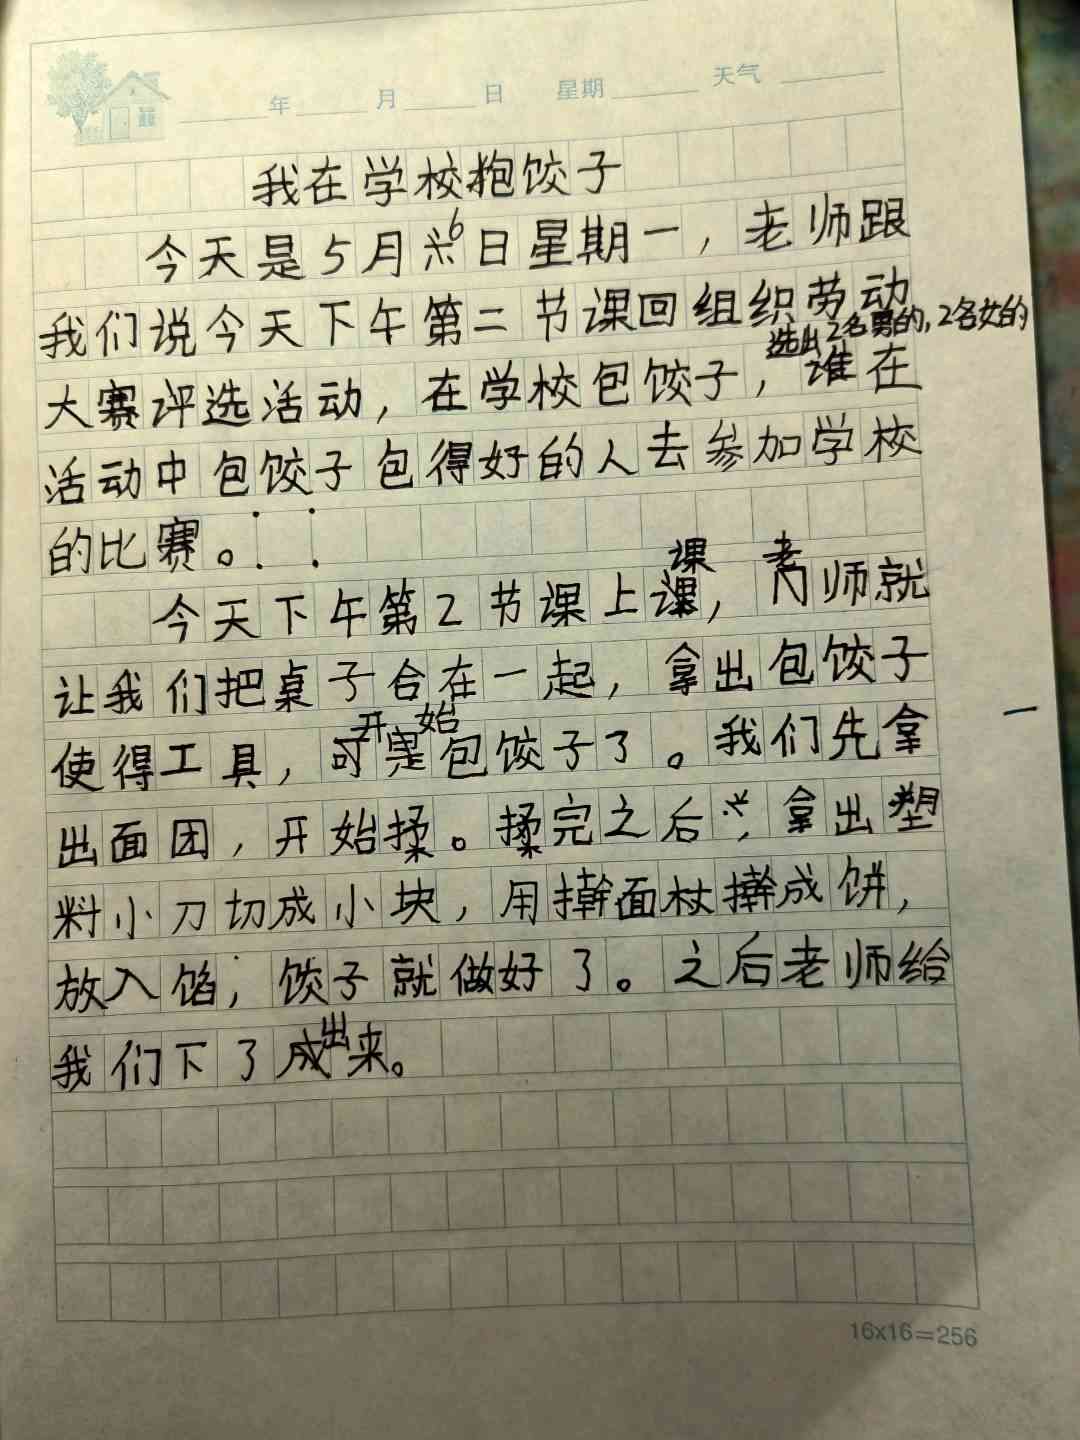 年 月 日 星期 天气
我在学校抱饺子
今天是5月6日星期一，老师跟
我们说今天下午第二节课回组织劳动
选出2名男的，2名女的
大赛评选活动，在学校包饺子，谁在
活动中包饺子包得好的人去参加学校
的比赛。
课 老
今天下午第2节课上，师就
让我们把桌子合在一起，拿出包饺子
开始
使得工具，可是包饺子了。我们先拿
出面团，开始揉。揉完之后，拿出塑
料小刀切成小块，用擀面杖擀成饼，
放入馅，饺子就做好了。之后老师给
我们下了出来。
16x16=256